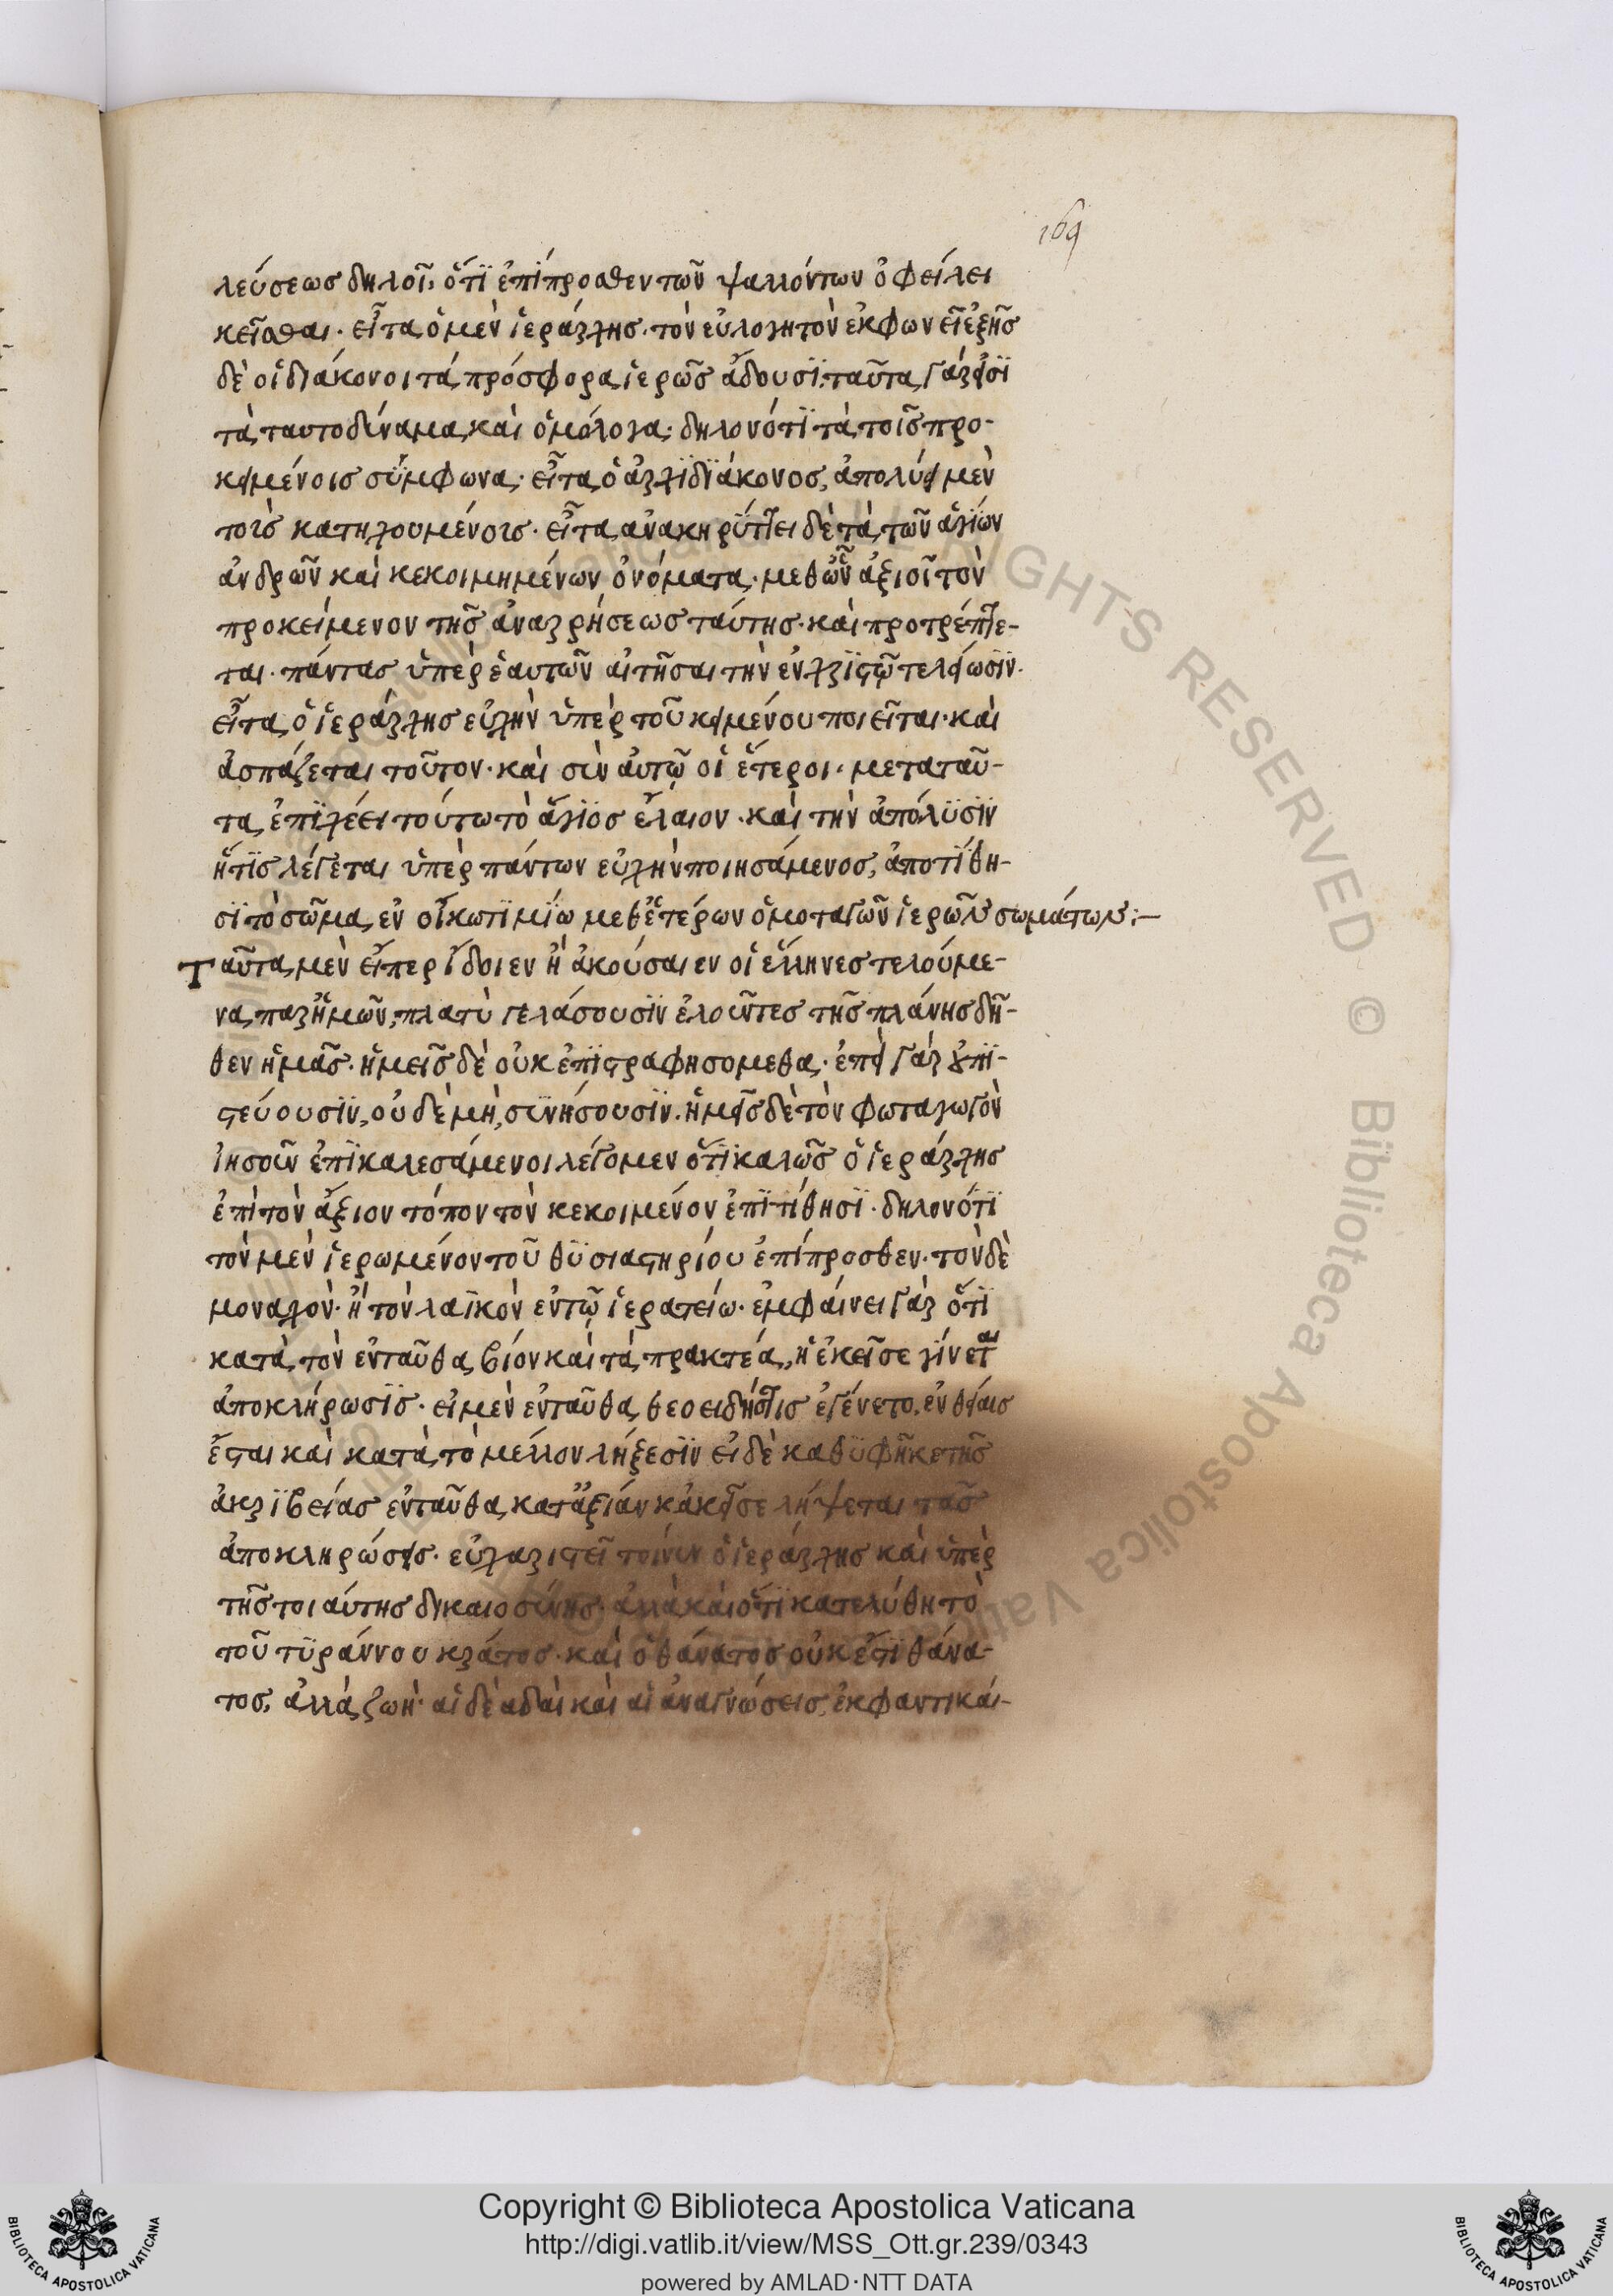 169
λεύσεως δηλοῖ, ὅτι ἐπίπροσθεν τῶν ψαλλόντων ὀφείλει
κεῖσθαι· εἶτα, ὁ μὲν ἱεράρχης· τὸν εὐλογητὸν ἐκφωνεῖ ἑξῆς
δὲ οἱ διάκονοι τὰ πρόσφορα ἱερῶς ἄδουσϊ· ταῦτα γάρ εἰσϊ
τὰ ταυτοδύναμα καὶ ὁμόλογα· δηλονότϊ τὰ τοῖς προ-
κειμένοις σύμφωνα· εἶτα, ὁ ἀρχϊδϊάκονος, ἀπολύει μὲν
τοῖς κατηχουμένοις· εἶτα, ἀνακηρύττει δὲ τὰ τῶν ἁγίων
ἀνδρῶν καὶ κεκοιμημένων ὀνόματα· μεθ ὧν ἀξιοῖ τὸν
προκείμενον τῆς ἀναρρήσεως ταύτης· καὶ προτρέπτε-
ται· πάντας ὑπὲρ ἑαυτῶν αἰτῆσαι τὴν ἐν χριστῷ τελείωσϊν·
εἶτα, ὁ ἱεράρχης εὐχὴν ὑπὲρ τοῦ κειμένου ποιεῖται· καὶ
ἀσπάζεται τοῦτον· καὶ σὺν ἀυτῷ οἱ ἕτεροι· μεταταῦ-
τα, ἐπϊχέει τούτω τὸ ἅγϊος ἔλαιον· καὶ τὴν ἀπόλϋσϊν
ἥτϊς λέγεται ὑπὲρ πάντων εὐχὴν ποιησάμενος, ἀποτίθη-
σϊ τὸ σῶμα, ἐν οἴκω τϊμϊω μεθ ἑτέρων ὁμοταγῶν ἱερῶν σωμάτων:—
Ταῦτα μὲν εἴπερ ἴδοιεν ἢ ἀκούσαιεν οἱ ἕλληνες τελούμε-
να, παρ ἡμῶν, πλατὺ γελάσουσϊν ἐλοῦντες τῆς πλάνης δῆ-
θεν ἡμᾶς· ἡμεῖς δὲ οὐκ ἐπϊστραφησομεθα· ἐπεὶ γὰρ οὐ πϊ-
στεύουσϊν, οὐδὲ μὴ, συνήσουσϊν· ἡμεῖς δὲ τὸν φωταγωγὸν
ἰησοῦν ἐπϊκαλεσάμενοι λέγομεν ὅτϊ καλῶς ὁ ἱεράρχης
ἐπὶ τὸν ἄξιον τόπον τὸν κεκοιμένον ἐπϊτίθησϊ· δηλονότϊ
τὸν μὲν ἱερωμένον τοῦ θϋσιαστηρίου ἐπίπροσθεν· τὸν δὲ
μοναχὸν· ἢ τὸν λαϊκὸν ἐν τῷ ἱερατείω· ἐμφάινει γὰρ ὅτϊ
κατὰ, τὸν ἐνταῦθα, βίον καὶ τὰ πρακτέα, ἡ ἐκεῖσε γίνεται
ἀποκλήρωσϊς· εἰ μὲν ἐνταῦθα, θεοειδής τις ἐγένετο, ἐν θείαις
ἔσται καὶ κατὰ, τὸ μέλλον λήξεσϊν εἰ δὲ καθϋφῆκε τῆς
ἀκρϊβείας ἐνταῦθα, κατ ἀξίαν κἀκεῖσε λήψεται τὰς
ἀποκληρώσεις· εὐχαριστεῖ τοίνυν ὁ ἱεράρχης καὶ ὑπὲρ
τῆς τοιαύτης δικαιοσύνης· ἀλλὰ καὶ ὅτϊ κατελύθη τὸ
τοῦ τϋράννου κράτος· καὶ ὁ θάνατος οὐκ ἔστι θάνα-
τος, ἀλλὰ, ζωὴ· αἱ δὲ ἀδαὶ καὶ αἱ ἀναγνώσεις, ἐκφαντικάι-
ALL RIGHTS RESERVED © Biblioteca Apostolica Vaticana
Copyright © Biblioteca Apostolica Vaticana
http://digi.vatlib.it/view/MSS_Ott.gr.239/0343
powered by AMLAD·NTT DATA
BIBLIOTECA APOSTOLICA VATICANA
BIBLIOTECA APOSTOLICA VATICANA